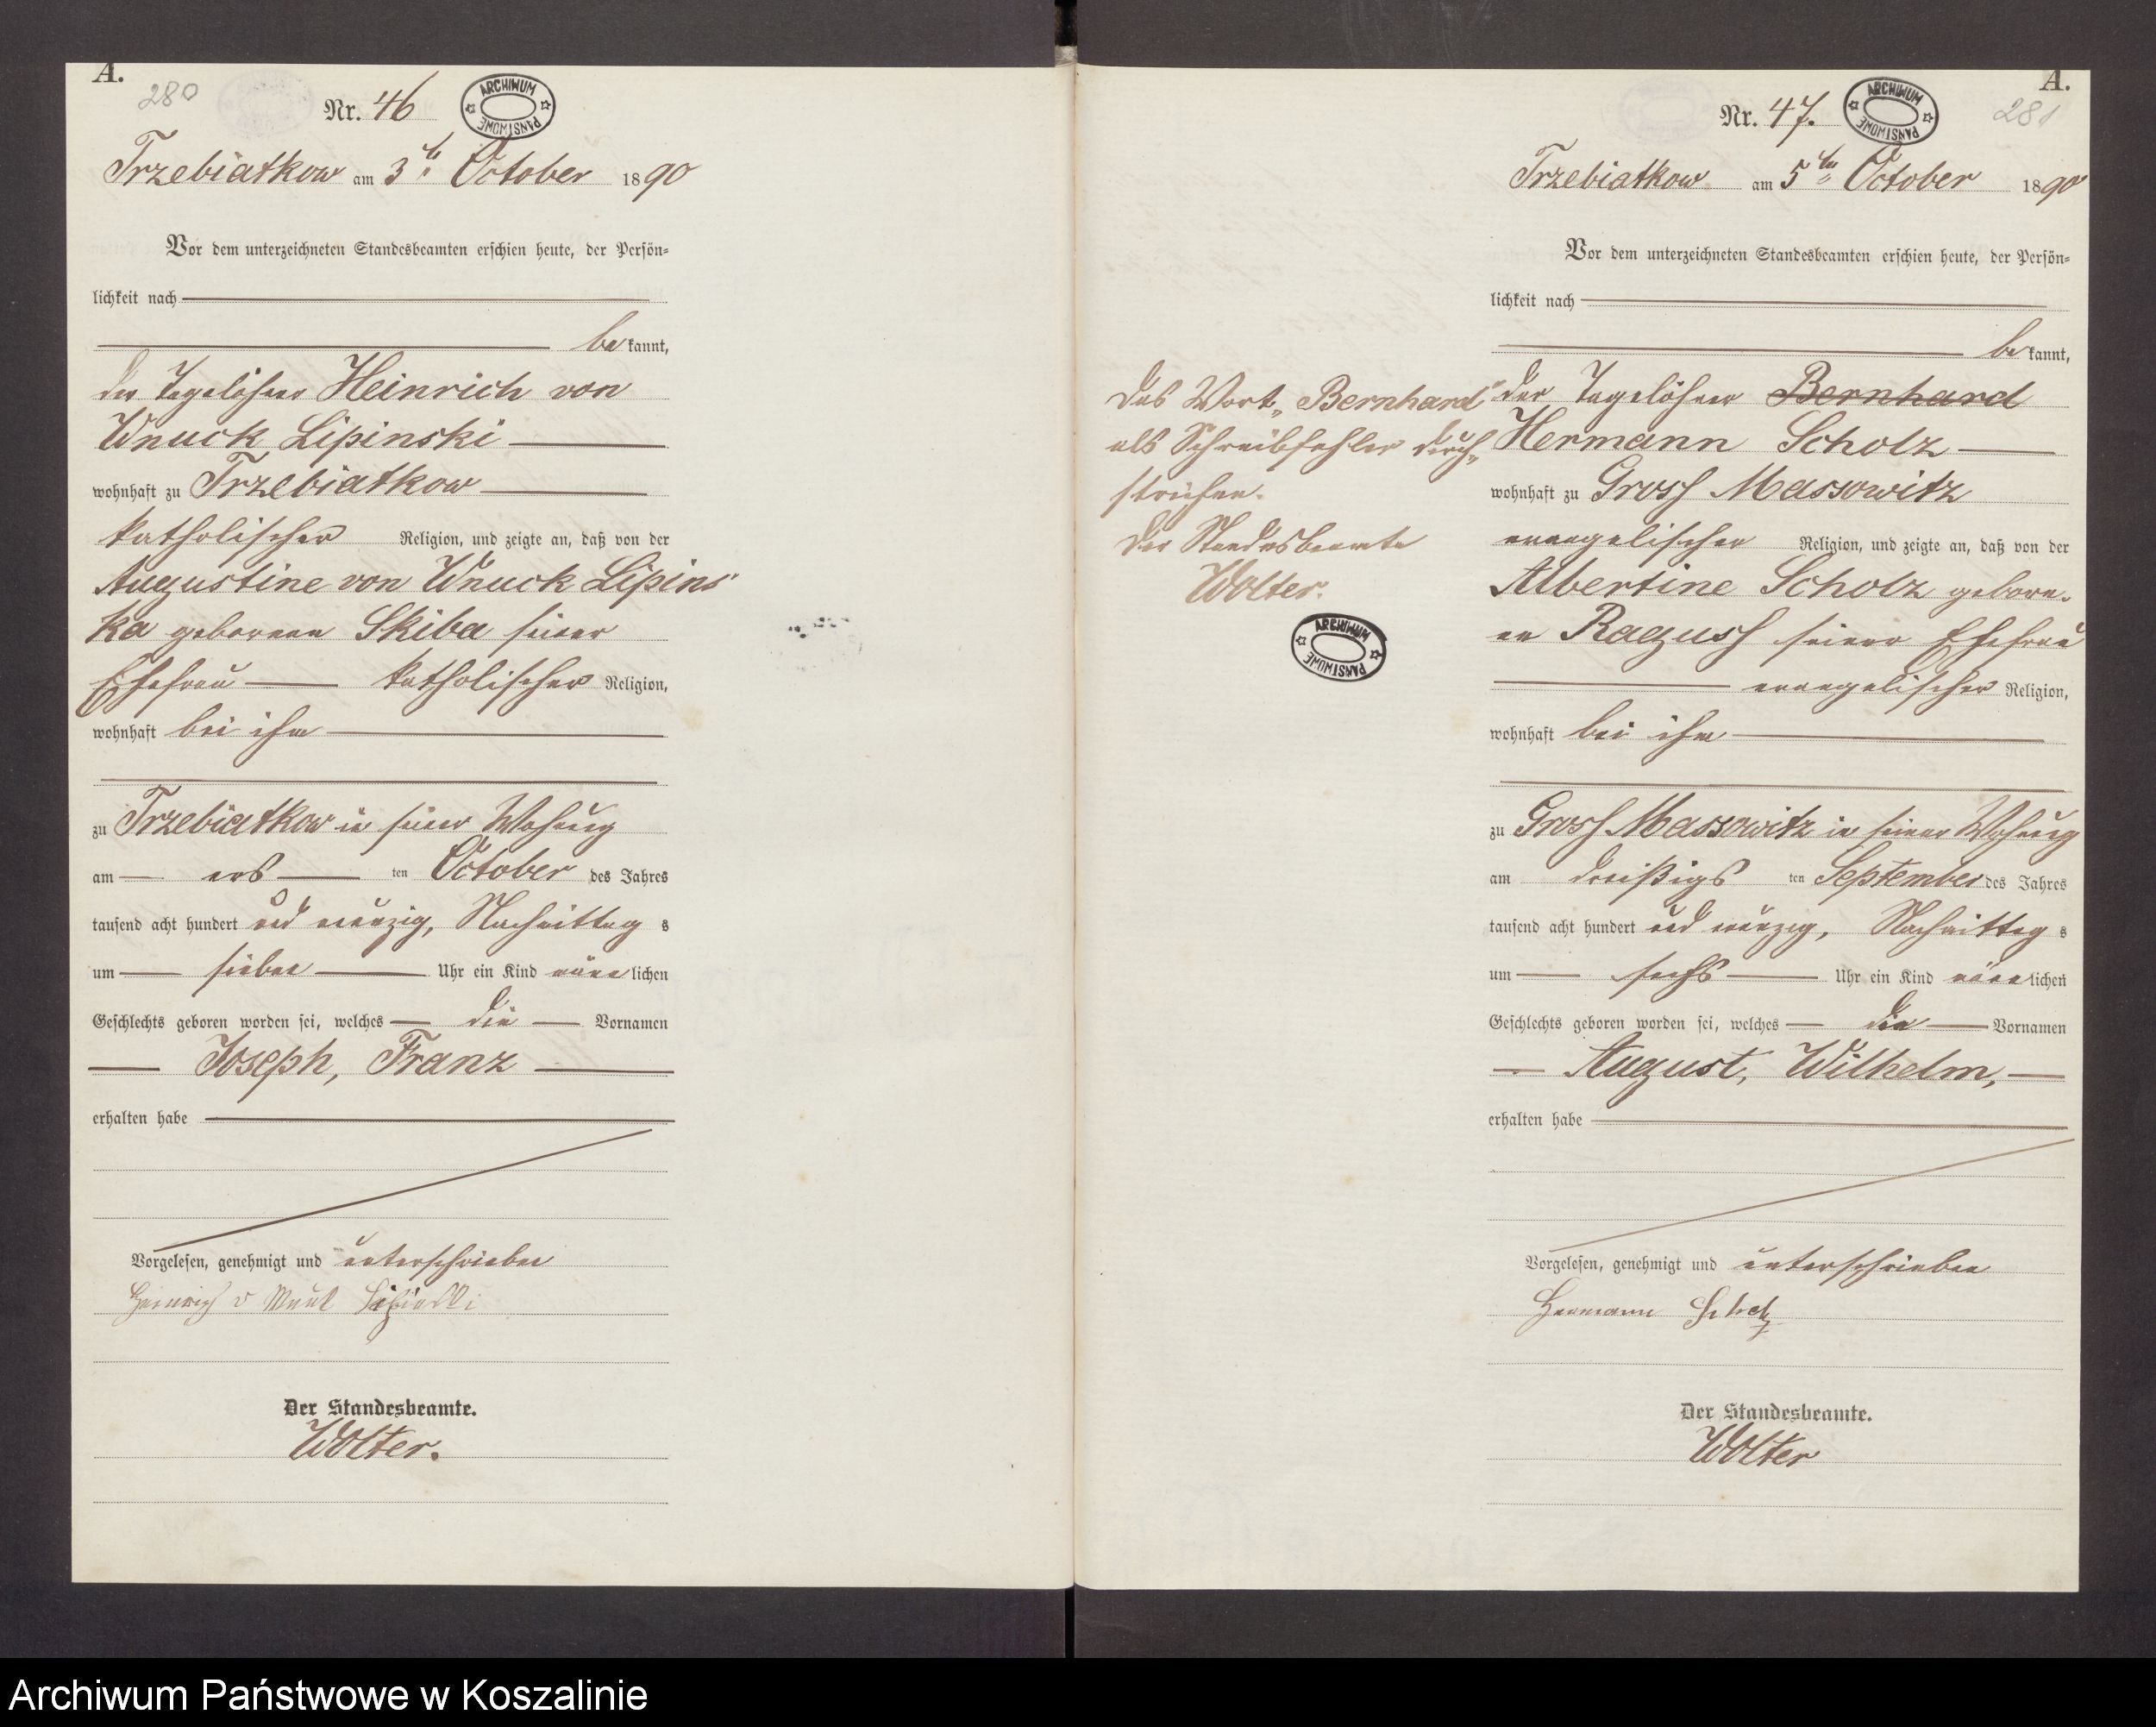 A.
280
Nr. 46
ARCHIWUM PAŃSTWOWE
Trzebiatkow am 3ten October 1890
Vor dem unterzeichneten Standesbeamten erschien heute, der Persön-
lichkeit nach
be kannt,
der Tagelöhner Heinrich von
Wnuck Lipinski
wohnhaft zu Trzebiatkow
katholischer Religion, und zeigte an, daß von der
Augustine von Wnuck Lipins-
ka geborenen Skiba seiner
Ehefrau katholischer Religion,
wohnhaft bei ihm
zu Trzebiatkow in seiner Wohnung
am ers ten October des Jahres
tausend acht hundert und neunzig, Nachmittag s
um sieben Uhr ein Kind männ lichen
Geschlechts geboren worden sei, welches die Vornamen
Joseph, Franz
erhalten habe
Vorgelesen, genehmigt und unterschrieben
Heinrich v Wnuk Lipinski
Der Standesbeamte.
Wolter.
A.
281
Nr. 47.
ARCHIWUM PAŃSTWOWE
Trzebiatkow am 5ten October 1890
Vor dem unterzeichneten Standesbeamten erschien heute, der Persön-
lichkeit nach
be kannt,
der Tagelöhner Bernhard
Hermann Scholz
wohnhaft zu Gross Massowitz
evangelischer Religion, und zeigte an, daß von der
Albertine Scholz gebore-
nen Ragusch seiner Ehefrau
evangelischer Religion,
wohnhaft bei ihm
zu Gross Massowitz in seiner Wohnung
am dreißigs ten September des Jahres
tausend acht hundert und neunzig, Nachmittag s
um sechs Uhr ein Kind männ lichen
Geschlechts geboren worden sei, welches die Vornamen
August, Wilhelm,
erhalten habe
Vorgelesen, genehmigt und unterschrieben
Hermann Scholz
Der Standesbeamte.
Wolter
Das Wort „Bernhard"
als Schreibfehler durch-
strichen.
Der Standesbeamte
Wolter.
ARCHIWUM PAŃSTWOWE
Archiwum Państwowe w Koszalinie